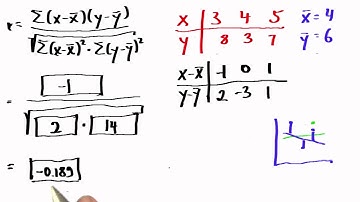 r = Σ(x-x̄)(y-ȳ) / √Σ(x-x̄)² · Σ(y-ȳ)²
= -1 / √2 · 14
= -0.189
x | 3 4 5
y | 8 3 7
x̄ = 4
ȳ = 6
x-x̄ | -1 0 1
y-ȳ | 2 -3 1